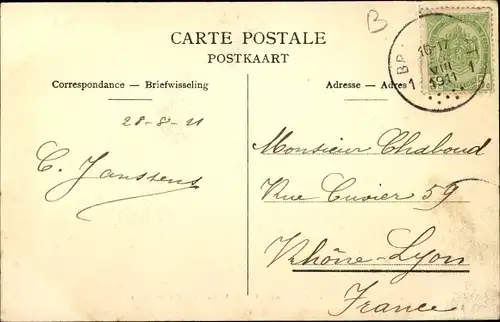 B
CARTE POSTALE
POSTKAART
Correspondance — Briefwisseling
Adresse — Adres
BR
16-17
1911
1 1
28-8-11
C. Janssens
Monsieur Chaboud
Rue Cuvier 59
Rhône-Lyon
France